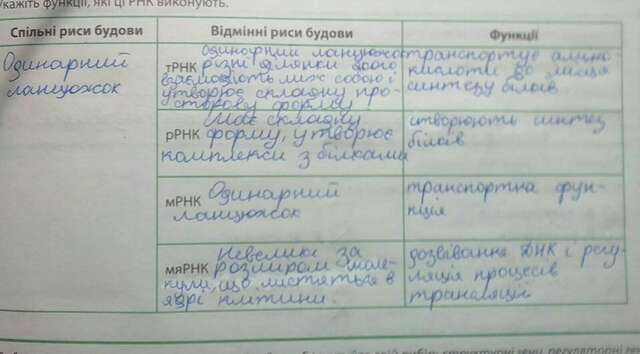 кажіть функції, які ці РНК виконують.
Спільні риси будови
Відмінні риси будови
Функції
Одинарний
ланцюжок
одинарний ланцюжок
тРНК різні ділянки якого
взаємодіють між собою і
утворює складну про-
сторову форму
транспортує аміно-
кислоти до місця
синтезу білків
має складну
рРНК форму, утворює
комплекси з білками
створюють синтез
білків
мРНК Одинарний
ланцюжок
транспортна фун-
кція
Невеликі за
мяРНК розміром моле-
кули, що містяться в
ядрі клітини.
дозвівання ДНК і регу-
ляція процесів
трансляції